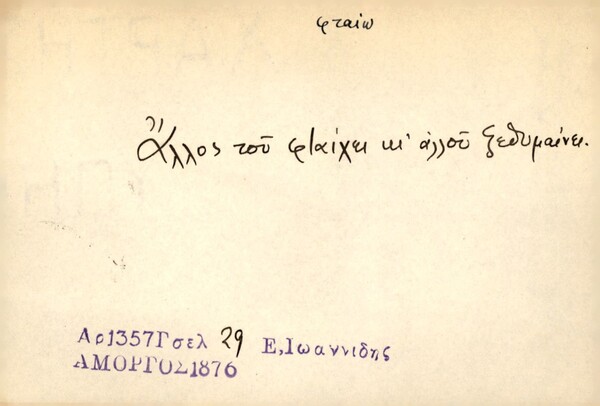 φταίω
Ἄλλος τοῦ φταίχει κι' ἀλλοῦ ξεθυμαίνει.
Αρ1357Γσελ 29 Ε,Ιωαννιδης
ΑΜΟΡΓΟΣ1876